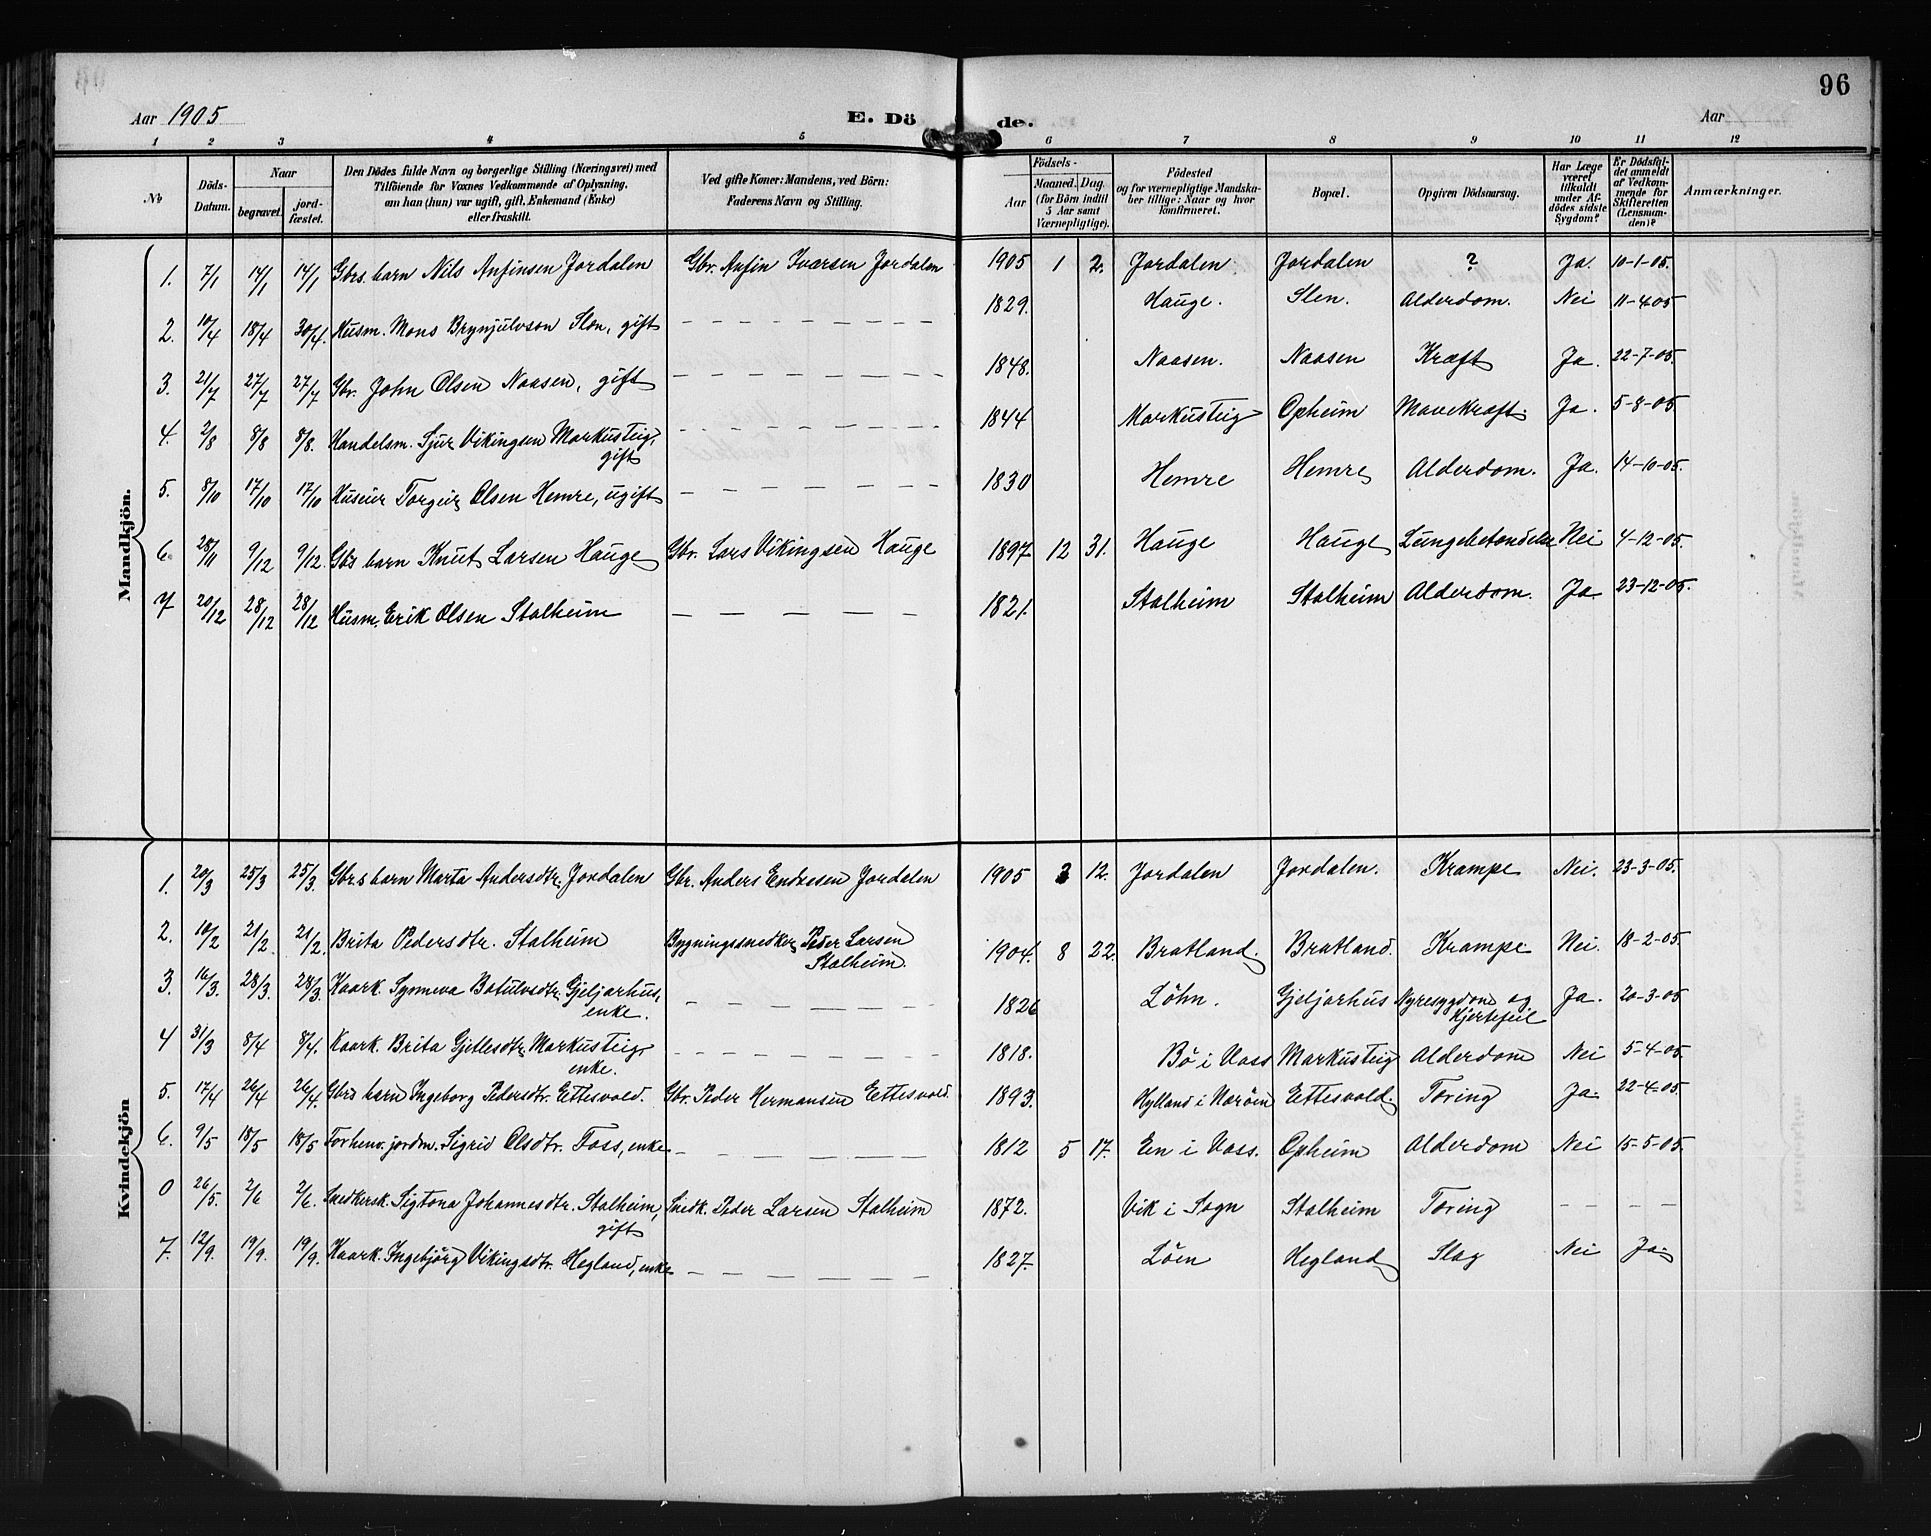 96
Aar 1905 E. Dö de. Aar
1 2 3 4 5 6 7 8 9 10 11 12
No Döds-Datum. Naar begravet. jord-fæstet. Den Dödes fulde Navn og borgerlige Stilling (Næringsvei) med Tilföiende for Voxnes Vedkommende af Oplysning, om han (hun) var ugift, gift, Enkemand (Enke) eller fraskilt. Ved gifte Koner: Mandens, ved Börn: Faderens Navn og Stilling. Födsels- Aar Maaned. Dag. (for Börn indtil 5 Aar samt Værnepligtige). Födested og for værnepligtige Mandskaber tillige: Naar og hvor Konfirmeret. Bopæl. Opgiven Dödsaarsag. Har Læge været tilkaldt under Afdödes sidste Sygdom? Er Dödsfaldet anmeldt af Vedkommende for Skifteretten (Lensmanden)? Anmærkninger.
Mandkjön.
1. 7/1 14/1 14/1 Gbrs. barn Nils Anfinsen Jordalen Gbr. Anfin Iversen Jordalen 1905 1 2. Jordalen. Jordalen ? Ja. 10-1-05.
2. 10/4 18/4 30/4. Husm. Mons Brynjulvson Slen, gift 1829. Hauge. Slen. Alderdom. Nei 11-4-05
3. 21/7 27/7 27/7 Gbr. John Olsen Naasen, gift 1848. Naasen. Naasen Kræft Ja. 22-7-05.
4. 2/8 8/8 8/8. Handelsm. Sjur Vikingsen Markusteig, gift 1844 Markusteig Opheim Mavekræft. Ja. 5-8-05
5. 8/10 17/10 17/10 Torgeir Olsen Hemre, ugift 1830 Hemre Hemre Alderdom. Ja. 14-10-05.
6. 28/11 9/12 9/12. Gbs barn Knut Larsen Hauge Gbr. Lars Vikingsen Hauge 1897 12 31. Hauge Hauge Lungebetændelse Nei 4-12-05.
7 20/12 28/12 28/12 Husm. Erik Olsen Stalheim 1821. Stalheim Stalheim Alderdom. Ja. 23-12-05.
Kvindekjön
1. 20/3 25/3 25/3. Gbr.s barn Marta Andersdtr. Jordalen Gbr. Anders Endresen Jordalen 1905 12. Jordalen Jordalen. Krampe Nei. 23-3-05.
2. 10/2 21/2. 21/2. Brita Pedersdtr. Stalheim Bygningssnedker Peder Larsen Stalheim. 1904. 8 22. Bratland. Bratland. Krampe Nei. 18-2-05
3. 16/3. 28/3. 28/3. Kaark. Synneva Botulvsdtr. Gjeljarhus, enke. 1826 Löhn. Gjeljarhus Nyresygdom og Hjertefeil Ja. 20-3-05
4 31/3 8/4 8/4. Kaark. Brita Gjetlesdtr. Markusteig, enke. 1818. Bö i Voss Markusteig Alderdom Nei 5-4-05.
5. 17/4 26/4 26/4. Gbrs barn Ingeborg Pedersdtr. Ettesvold. Gbr. Peder Hermansen Ettesvold. 1893. Hylland i Næröen Ettesvold. Tæring Ja. 22-4-05.
6. 9/5 18/5 18/5 Forhenv. jordm. Sigrid Olsdtr. Foss, enke 1812 5 17. En i Voss. Opheim Alderdom Nei 15-5-05.
0 26/5. 2/6 2/6. Snedkersk. Sigtona Johannesdtr. Stalheim, gift Snedk. Peder Larsen Stalheim 1872. Vik i Sogn Stalheim Tæring
7. 12/9. 19/9. 19/9. Kaark. Ingebjörg Vikingsdtr. Hegland, enke 1827. Löen Hegland Slag Nei Ja.